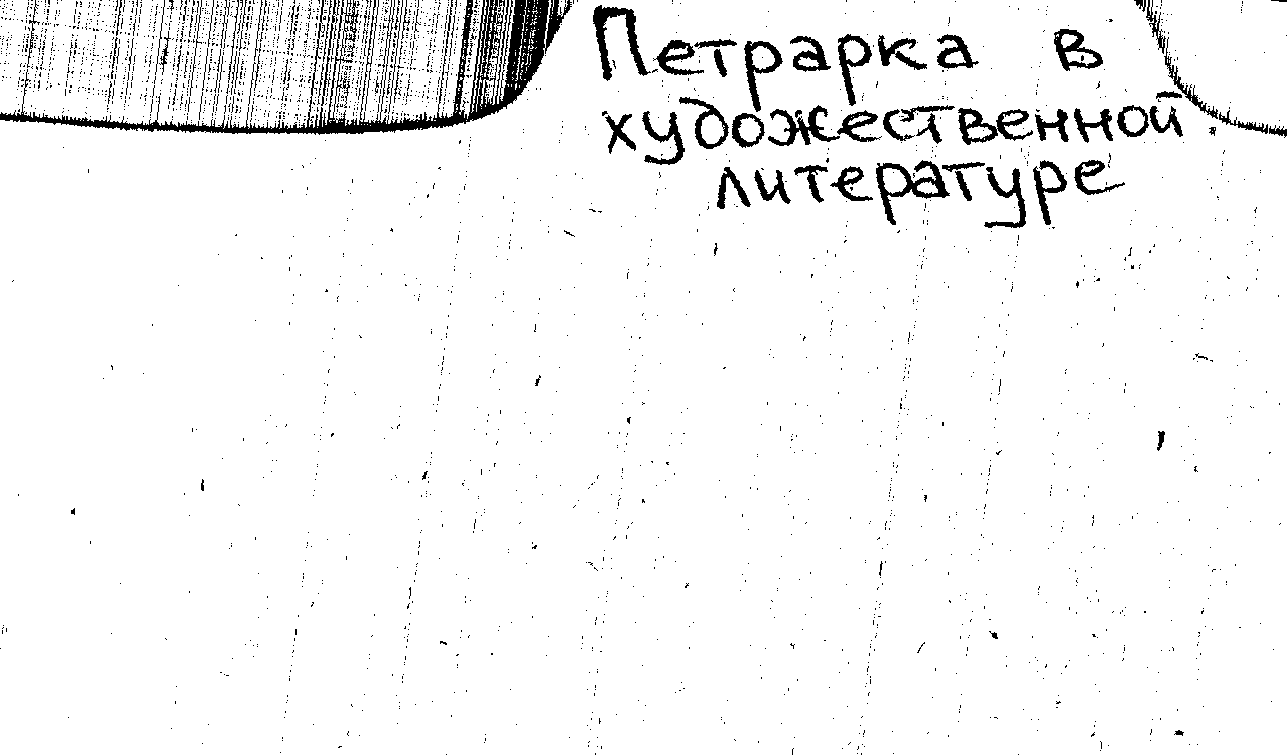 Петрарка в
художественной
литературе